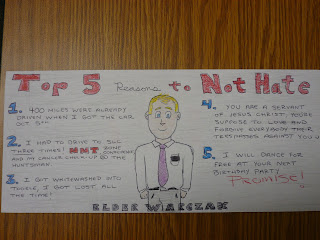 Top 5 Reasons to Not Hate
1. 400 miles were already
driven when I got the car
Oct 5th
2. I had to drive to SLC
three times! NMT zone
and my cancer check-up @ the
Huntsman.
3. I got whitewashed into
Tooele, I got lost all
the time!
4. You are a servant
of Jesus Christ you're
suppose to love and
forgive everybody their
trespasses against you
5. I will dance for
free at your next
birthday party
Promise!
Elder Wiarczak